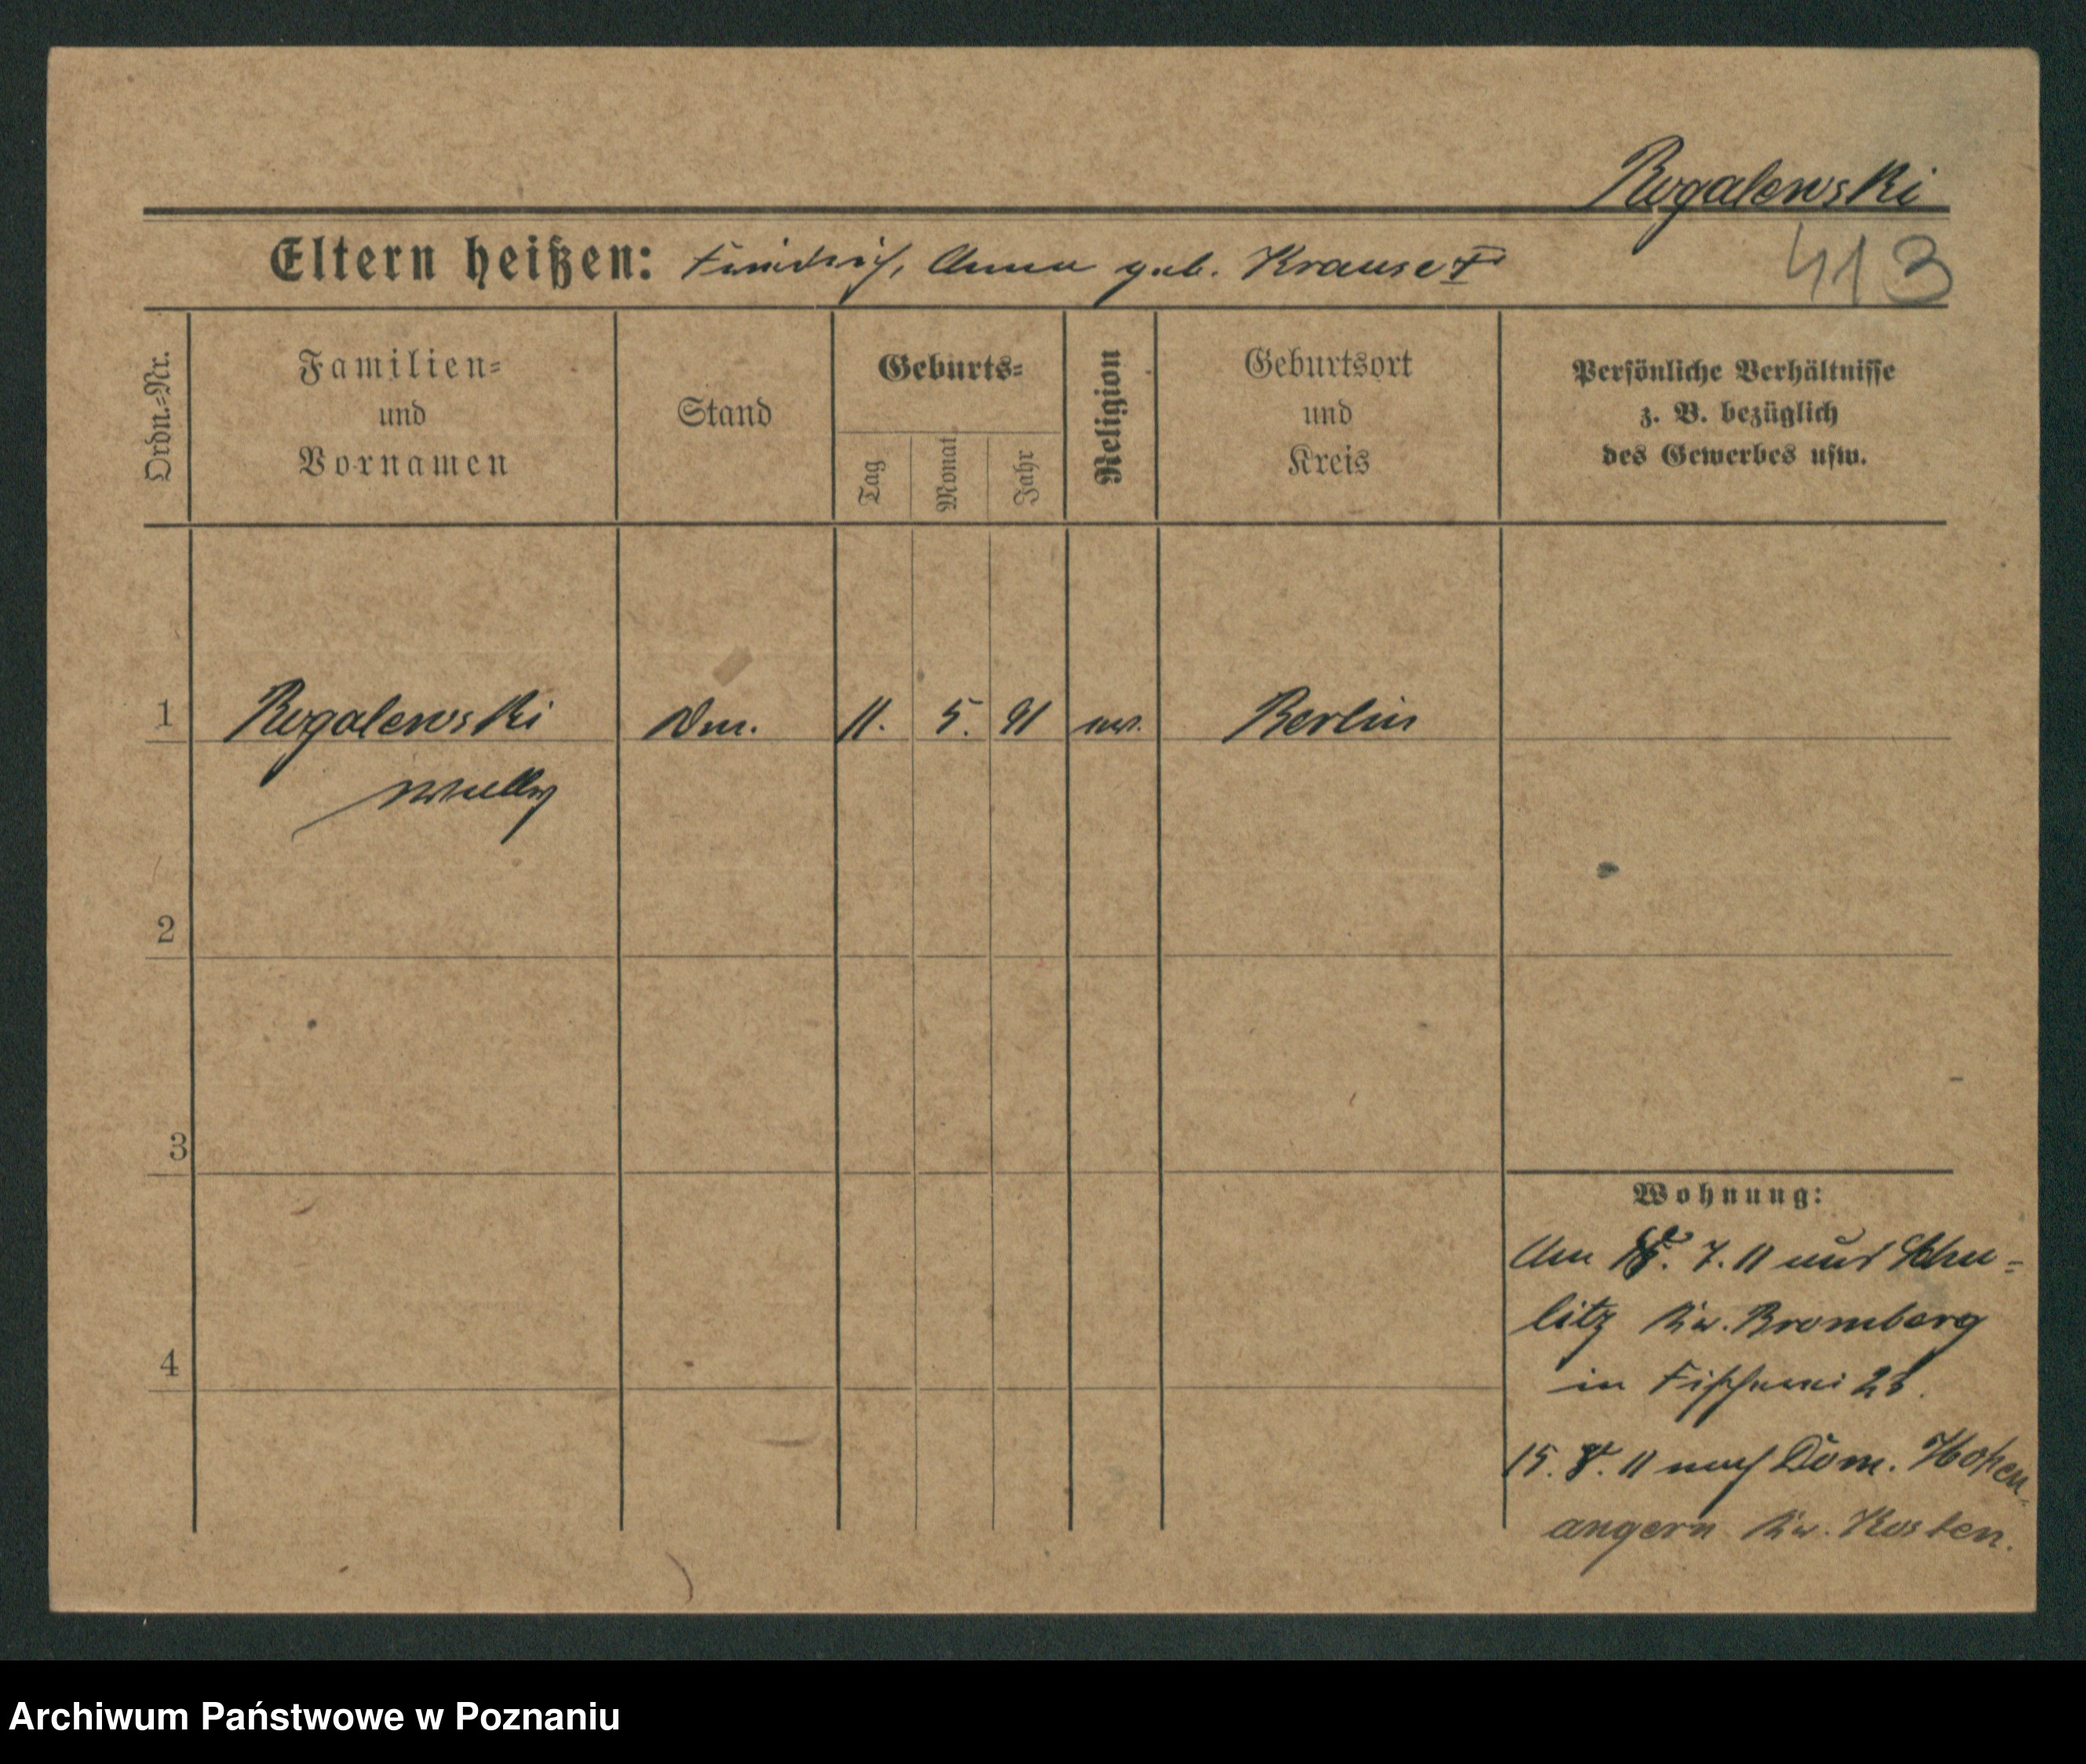 Rogalewski
Eltern heißen: Friedrich, Anna geb. Krause
413
Ordn.=Nr.
Familien=
und
Vornamen
Stand
Geburts=
Tag
Monat
Jahr
Religion
Geburtsort
und
Kreis
Persönliche Verhältnisse
z. B. bezüglich
des Gewerbes usw.
1 Rogalewski 11. 5. 91 ev. Berlin
Willy
2
3
4
Wohnung:
Am 7. 11 aus Schu=
litz Kr. Bromberg
in Fischerei 23.
15. 8. 11 nach Dom. Hohen
angern Kr. Kosten.
Archiwum Państwowe w Poznaniu